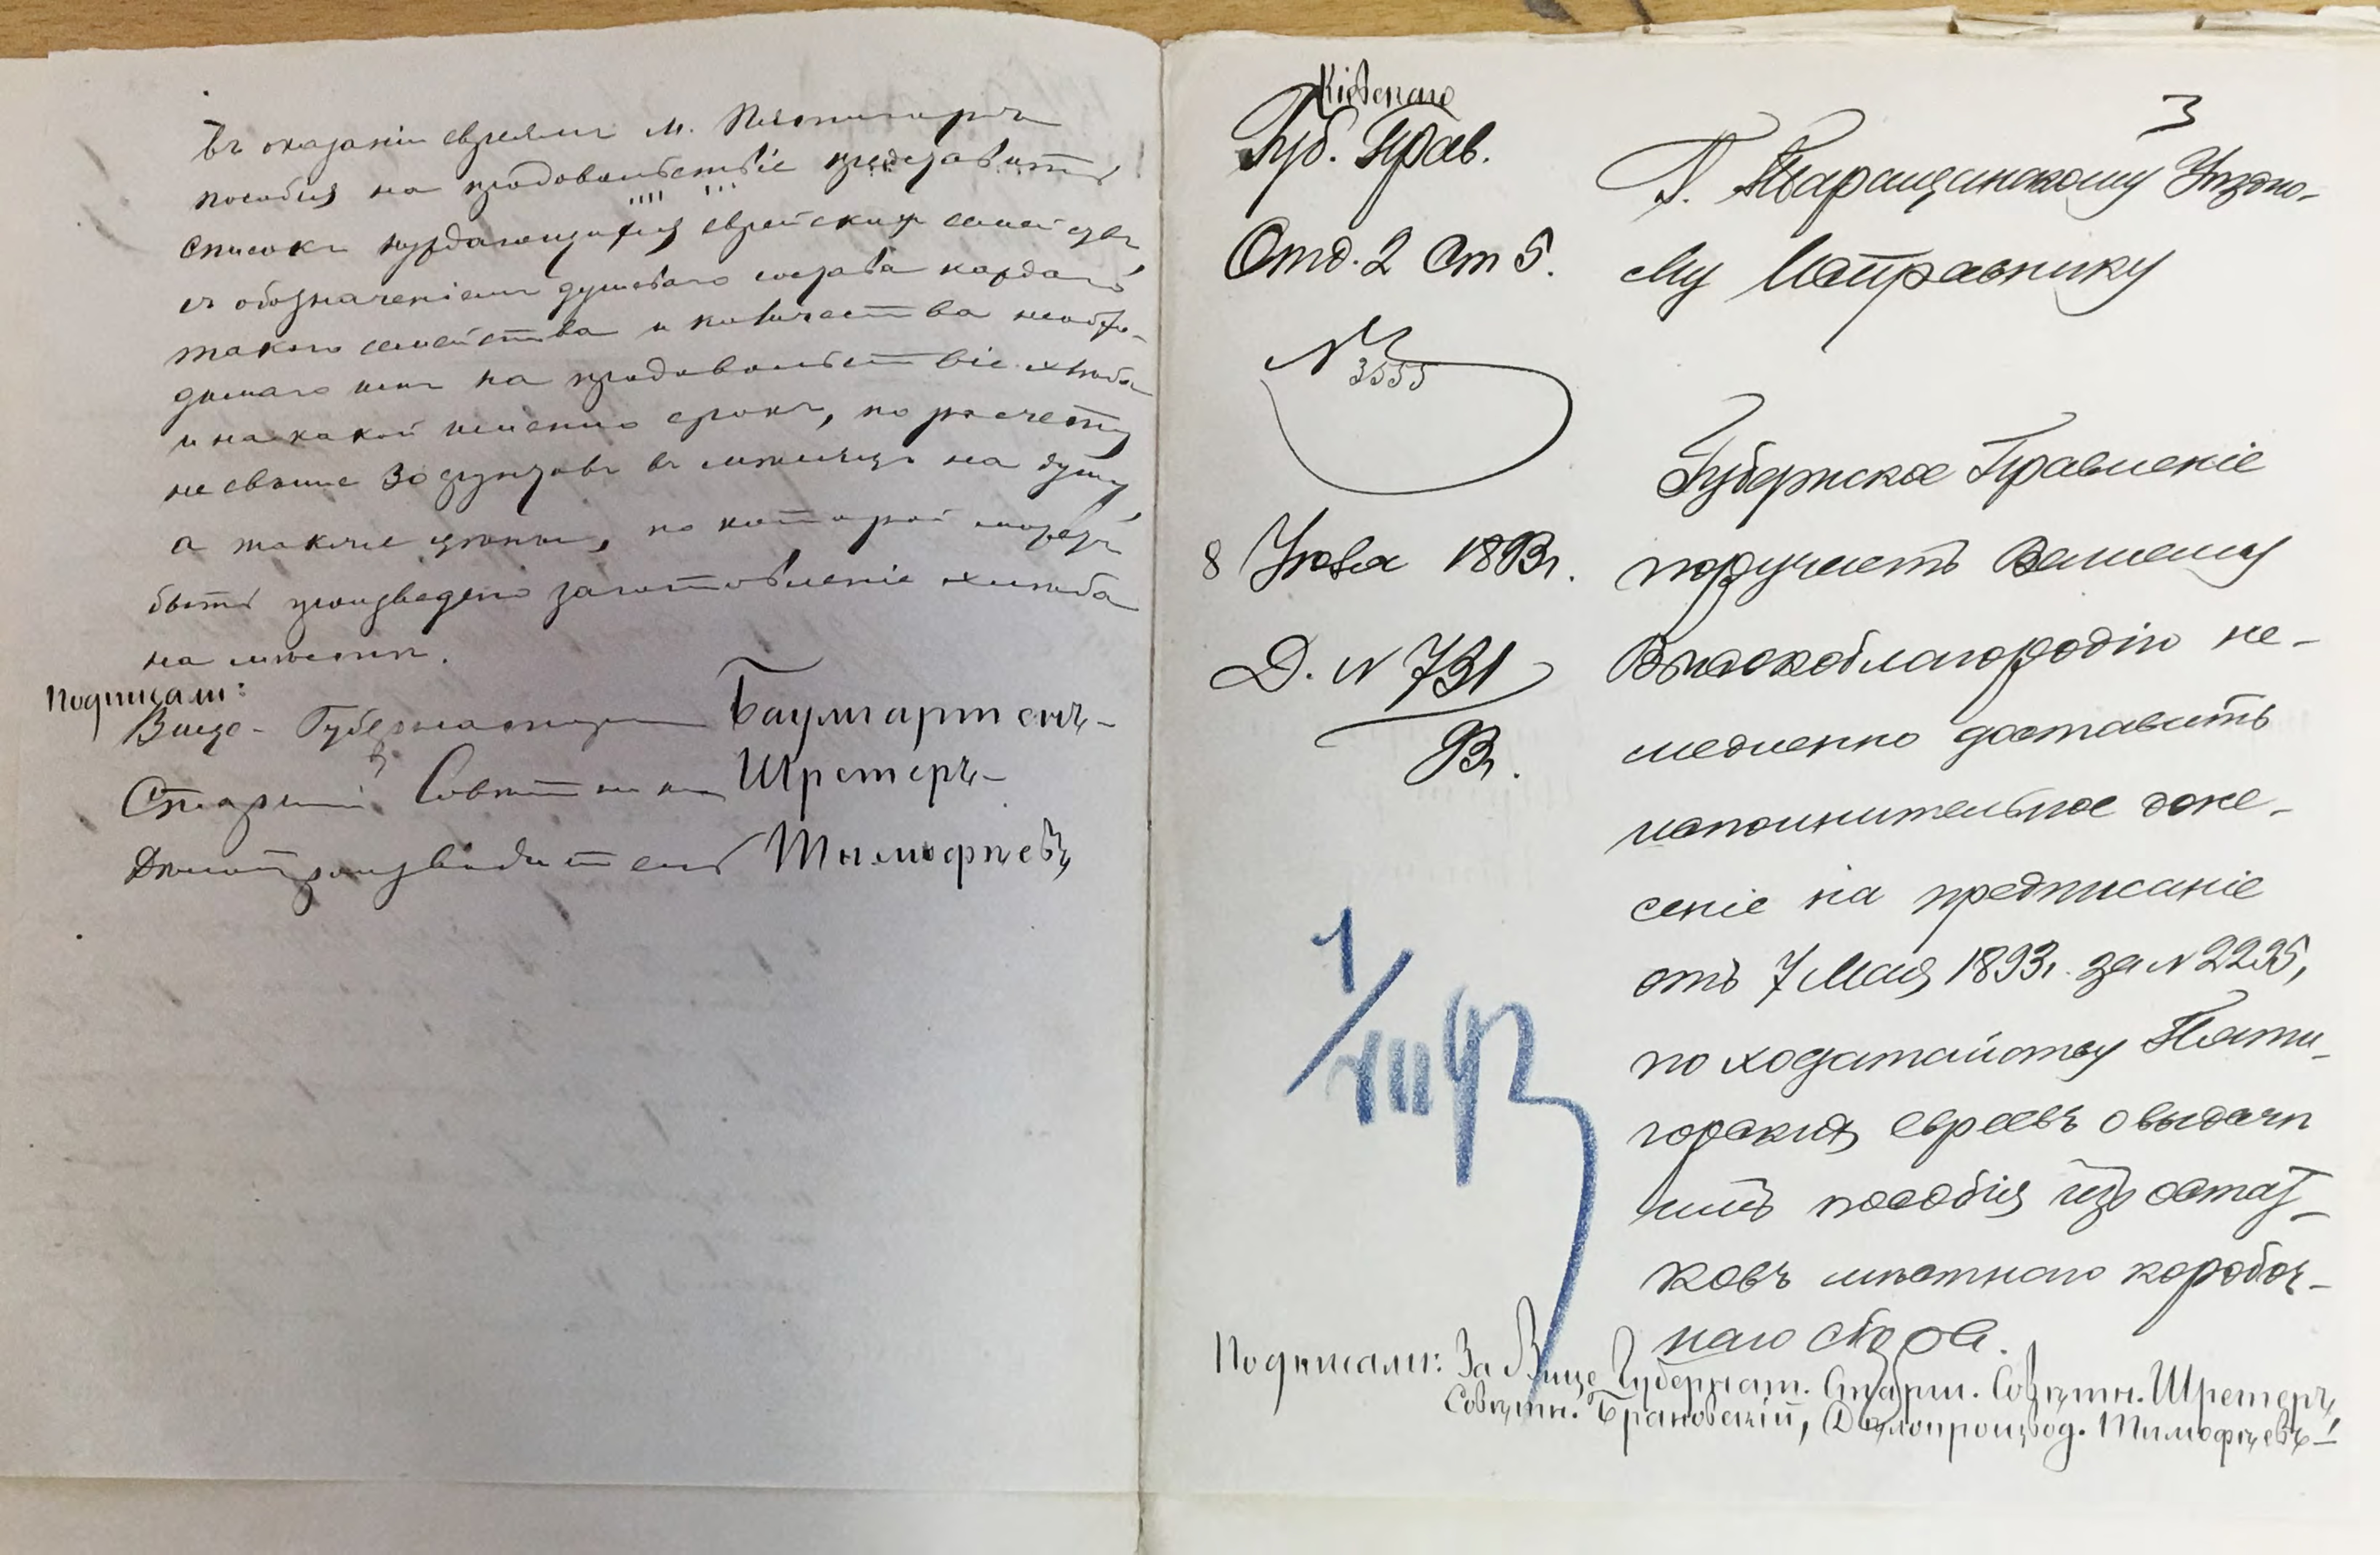 въ оказаніи евреямъ м. Пятигоръ
пособія на продовольствіе представить
списокъ нуждающихся еврейскихъ семействъ,
съ обозначеніемъ душеваго состава каждаго
такого семейства и количества необхо-
димаго имъ на продовольствіе хлѣба
и на какой именно срокъ, по расчету
не свыше 30 фунтовъ въ мѣсяцъ на душу,
а также цѣны, по которой можетъ
быть произведено заготовленіе хлѣба
на мѣстѣ.
Подписали:
Вице-Губернаторъ Баумгартенъ-
Старшій Совѣтникъ Шретеръ-
Дѣлопроизводитель Тимофѣевъ
Кіевскаго
Губ. Прав.
Отд. 2 Ст 5.
N 3555
8 Іюля 1893г.
Д. N 731
93г.
1/VII 93
3
Г. Таращанскому Уѣздно-
му Исправнику
Губернское Правленіе
поручаетъ Вашему
Высокоблагородію не-
медленно доставить
исполнительное доне-
сеніе на предписаніе
отъ 7 Мая 1893г. за N 2235,
по ходатайству Пяти-
горскихъ евреевъ о выдачѣ
имъ пособія изъ остат-
ковъ мѣстнаго коробоч-
наго сбора.
Подписали: За Вице Губернат. Старш. Совѣтн. Шретеръ,
Совѣтн. Брановскій, Дѣлопроизвод. Тимофѣевъ-